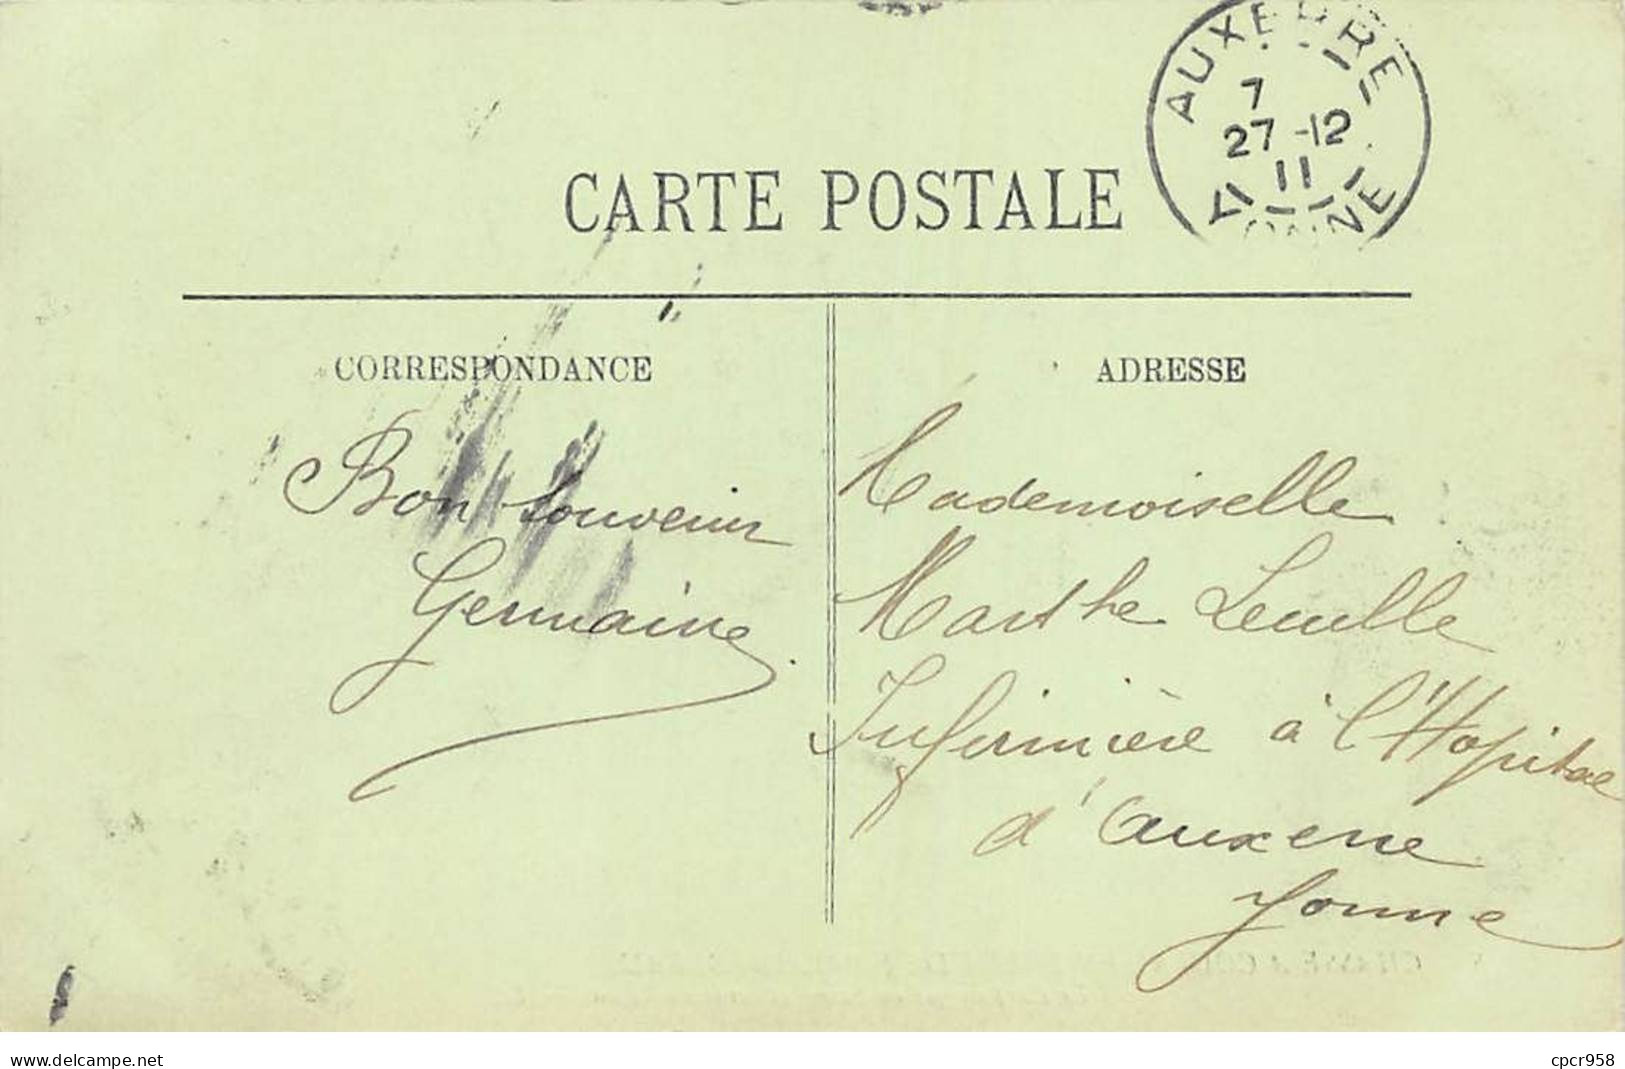 AUXERRE
7
27 -12
11
YONNE
CARTE POSTALE
CORRESPONDANCE
Bon souvenir
Germaine
ADRESSE
Mademoiselle
Marthe
Infirmière à l'Hopital
d'Auxerre
Yonne
www.delcampe.net
cpcr958